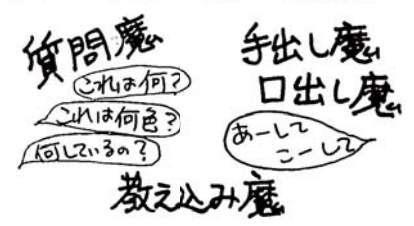 質問魔
これは何?
これは何色?
何しているの?
手出し魔
口出し魔
あーして
こーして
教え込み魔